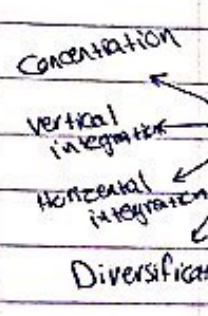 Concentration
vertical
integration
Horizental
integration
Diversificat